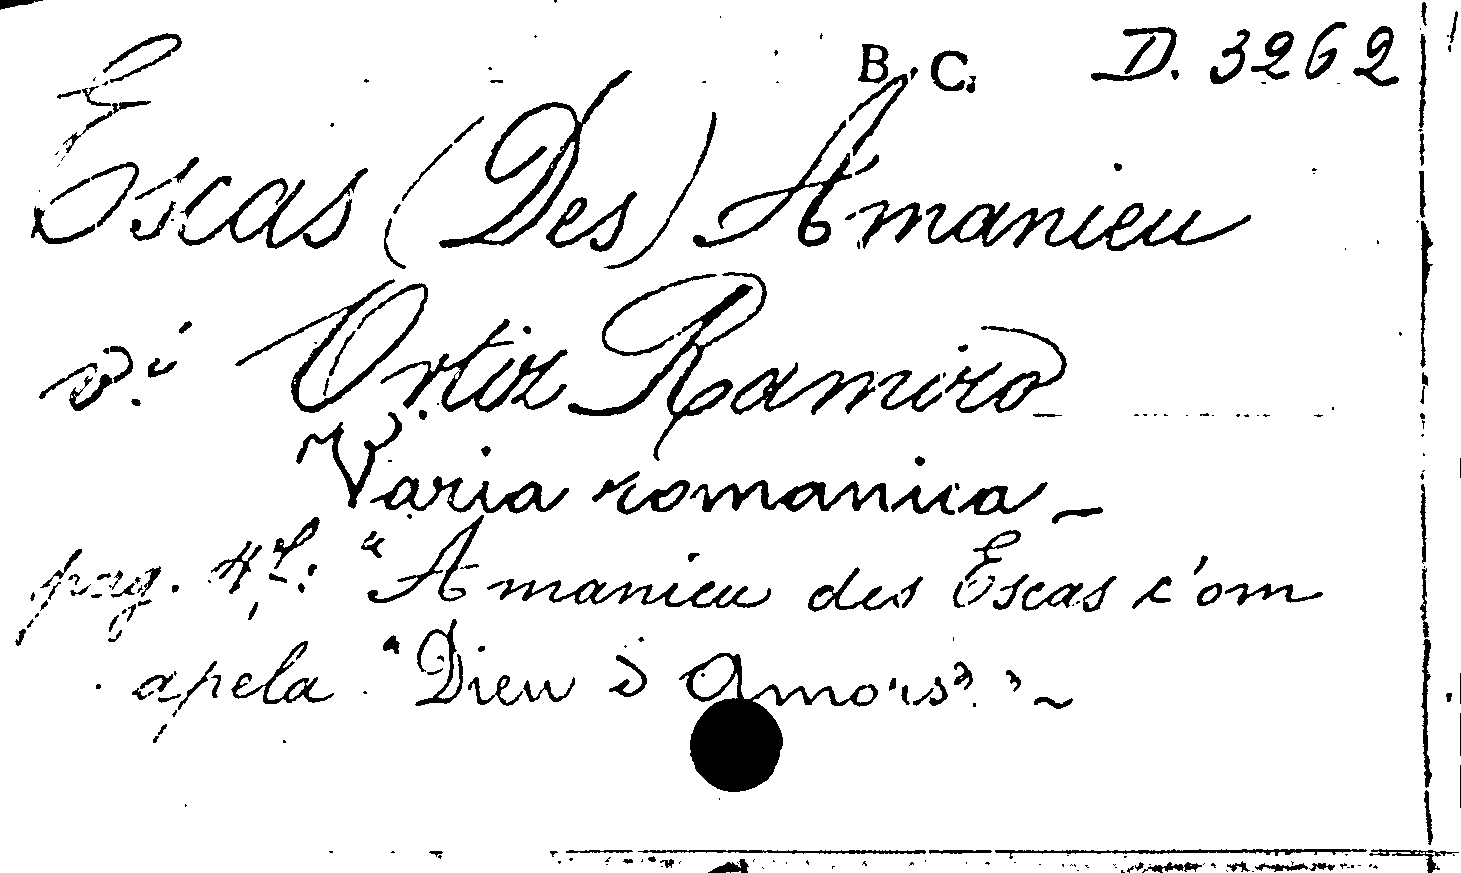 B. C. D. 3262
Escas (Des) Amanieu
v. Ortiz Ramiro
Varia romanica
pag. "Amanieu des Escas c'om
apela "Dieu d'Amors""